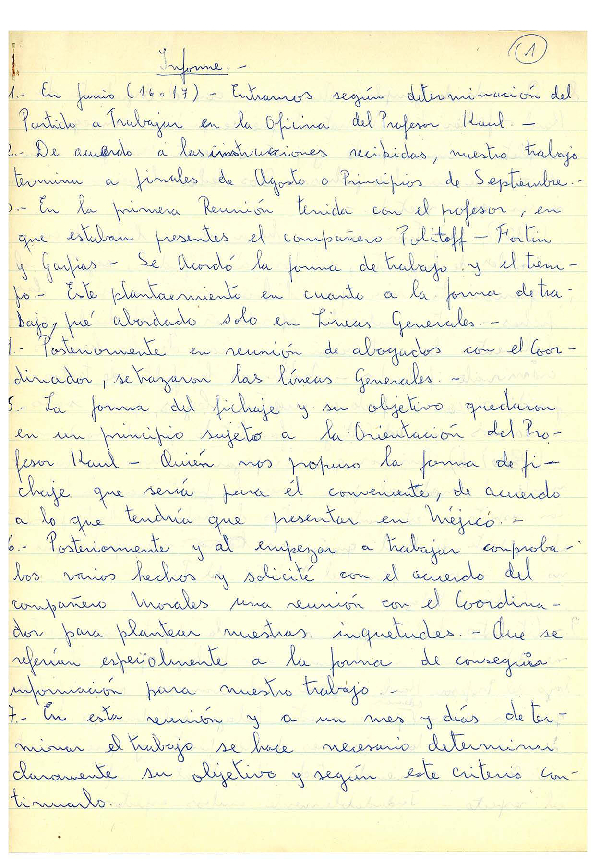 (1)
Informe.-
1.- En Junio (16 o 17) - Entramos según determinación del
Partido a Trabajar en la Oficina del Profesor Kaul.-
2.- De acuerdo a las instrucciones recibidas, nuestro trabajo
termina a finales de Agosto o Principios de Septiembre.-
3.- En la primera Reunión tenida con el profesor, en
que estaban presentes el compañero Politoff - Fortín
y Garfias - Se Acordó la forma de trabajo y el tiem-
po.- Este plantaemiento en cuanto a la forma de tra-
bajo, fué abordado solo en Líneas Generales.-
4.- Posteriormente en reunión de abogados con el Coor-
dinador, se trazaron las líneas Generales.-
5.- La forma del fichaje y su objetivo quedaron
en un principio sujeto a la Orientación del Pro-
fesor Kaul - Quién nos propuso la forma de fi-
chaje que sería para él conveniente, de acuerdo
a lo que tendría que presentar en Méjico.-
6.- Posteriormente y al empezar a trabajar comproba-
mos varios hechos y solicité con el acuerdo del
compañero Morales una reunión con el Coordina-
dor para plantear nuestras inquetudes.- Que se
referían especialmente a la forma de conseguir
información para nuestro trabajo -
7.- En esta reunión y a un mes y días de ter-
minar el trabajo se hace necesario determinar
claramente su objetivo y según este criterio con-
tinuarlo.